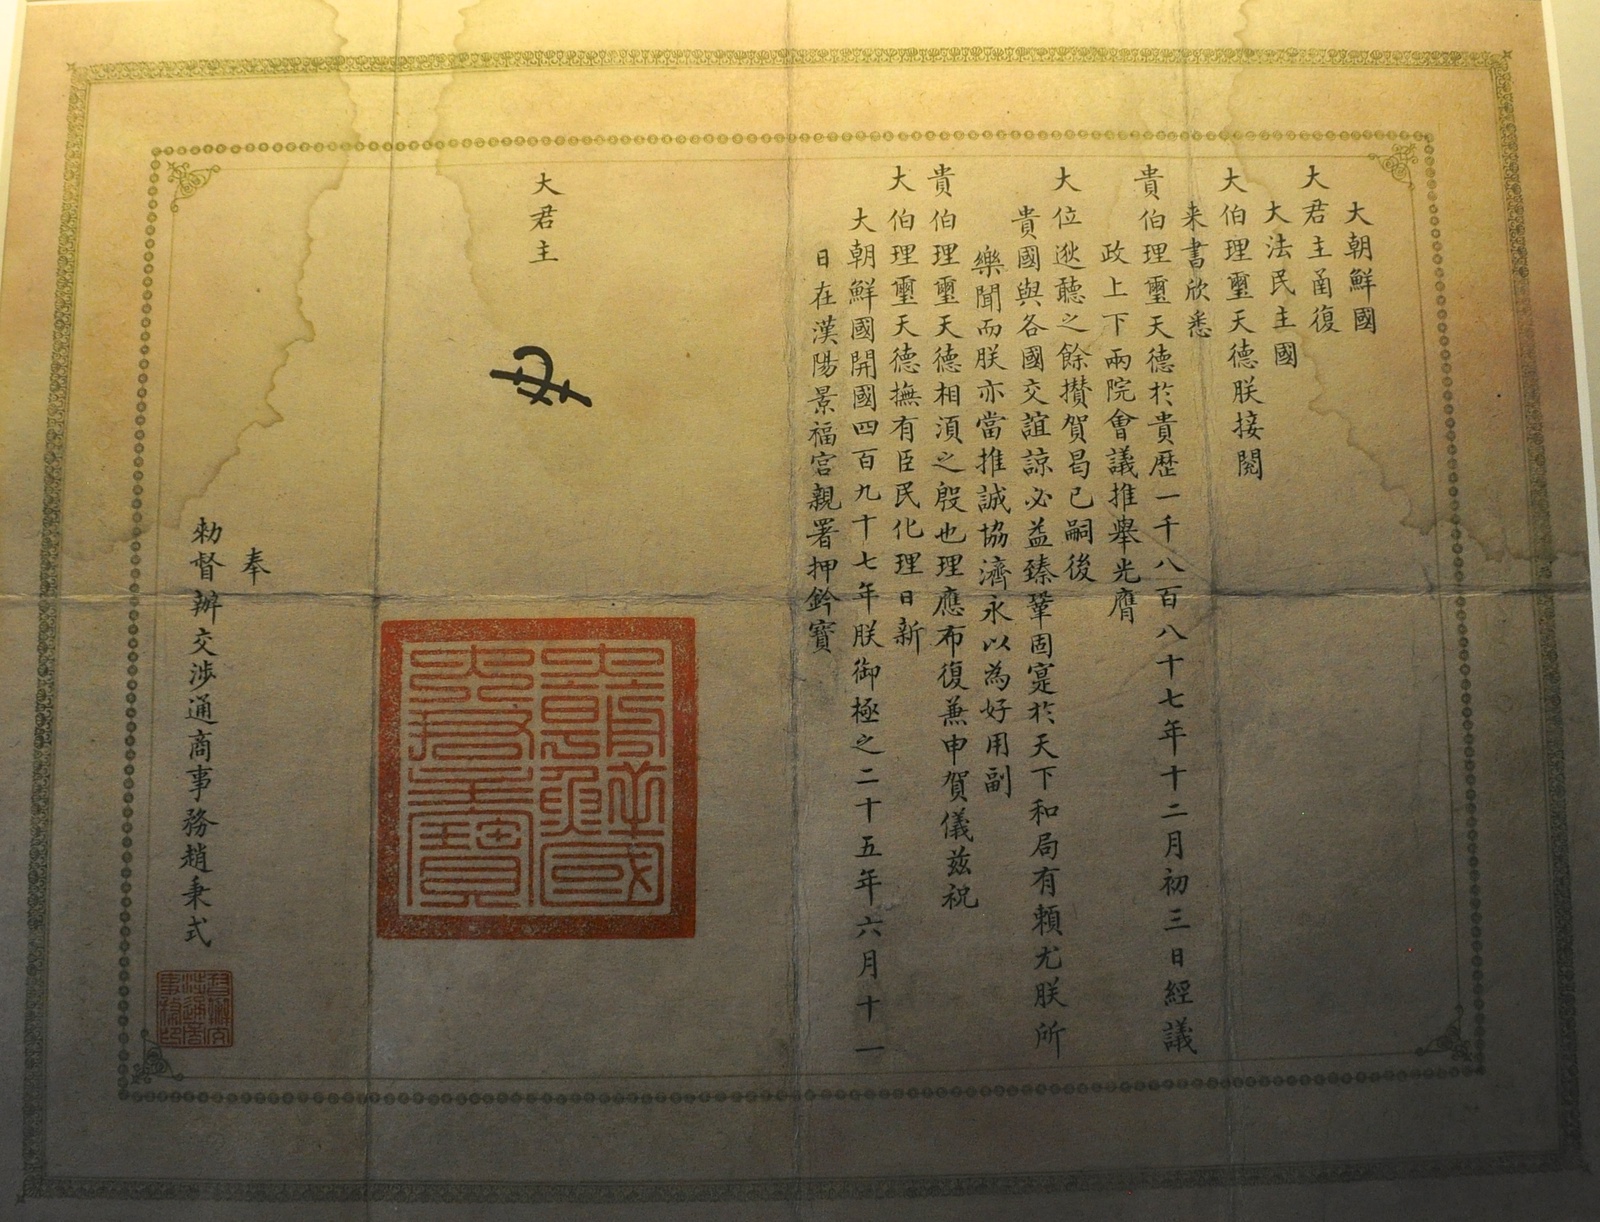 大朝鮮國
大君主函復
大法民主國
大伯理璽天德朕接閱
来書欣悉
貴伯理璽天德於貴歷一千八百八十七年十二月初三日經議
政上下兩院會議推舉光膺
大位逖聽之餘攢賀曷已嗣後
貴國與各國交誼諒必益臻鞏固寔於天下和局有賴尤朕所
樂聞而朕亦當推誠協濟永以為好用副
貴伯理璽天德相湏之殷也理應布復兼申賀儀兹祝
大伯理璽天德撫有臣民化理日新
大朝鮮國開國四百九十七年朕御極之二十五年六月十一
日在漢陽景福宮親署押鈐寶
大君主
大朝鮮國
大君主寶
奉
勅督辦交涉通商事務趙秉式